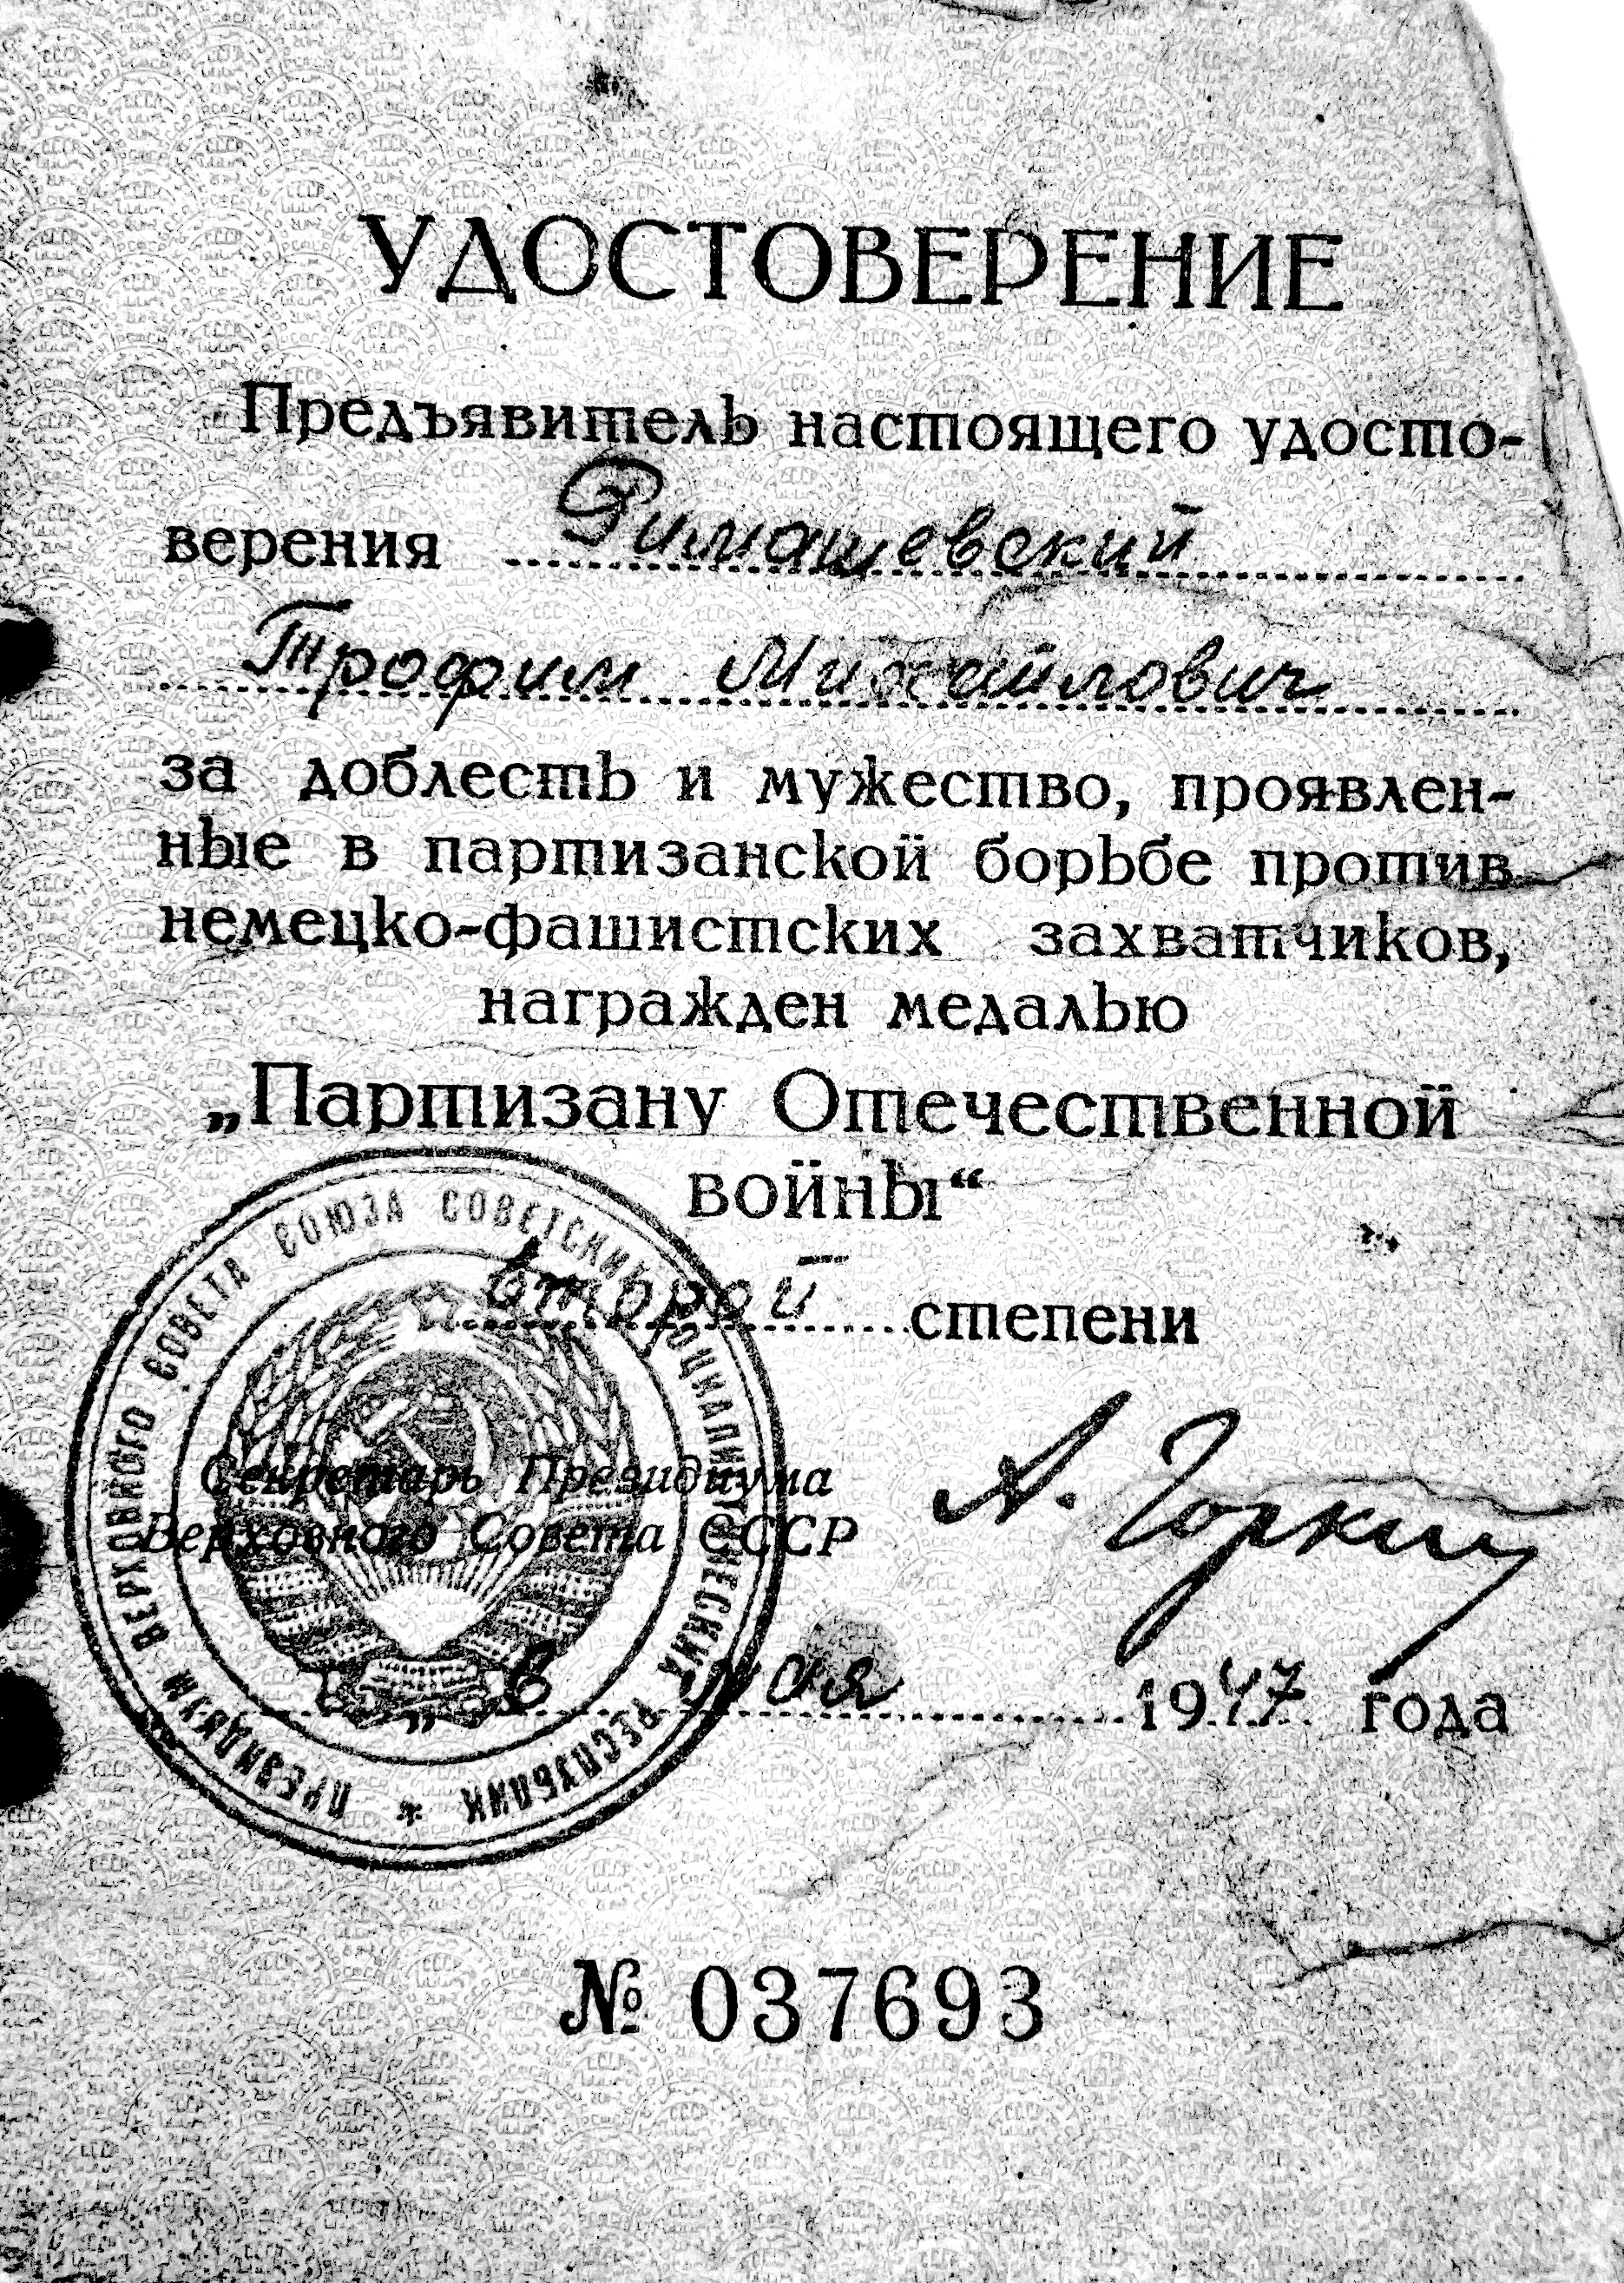 УДОСТОВЕРЕНИЕ
Предъявитель настоящего удосто-
верения Римашевский
Трофим Михайлович
за доблесть и мужество, проявлен-
ные в партизанской борьбе против
немецко-фашистских захватчиков,
награжден медалью
„Партизану Отечественной
войны“
второй степени
Секретарь Президиума
Верховного Совета СССР
А. Горкин
мая 1947 года
ПРЕЗИДИУМ ВЕРХОВНОГО СОВЕТА СОЮЗА СОВЕТСКИХ СОЦИАЛИСТИЧЕСКИХ РЕСПУБЛИК *
№ 037693